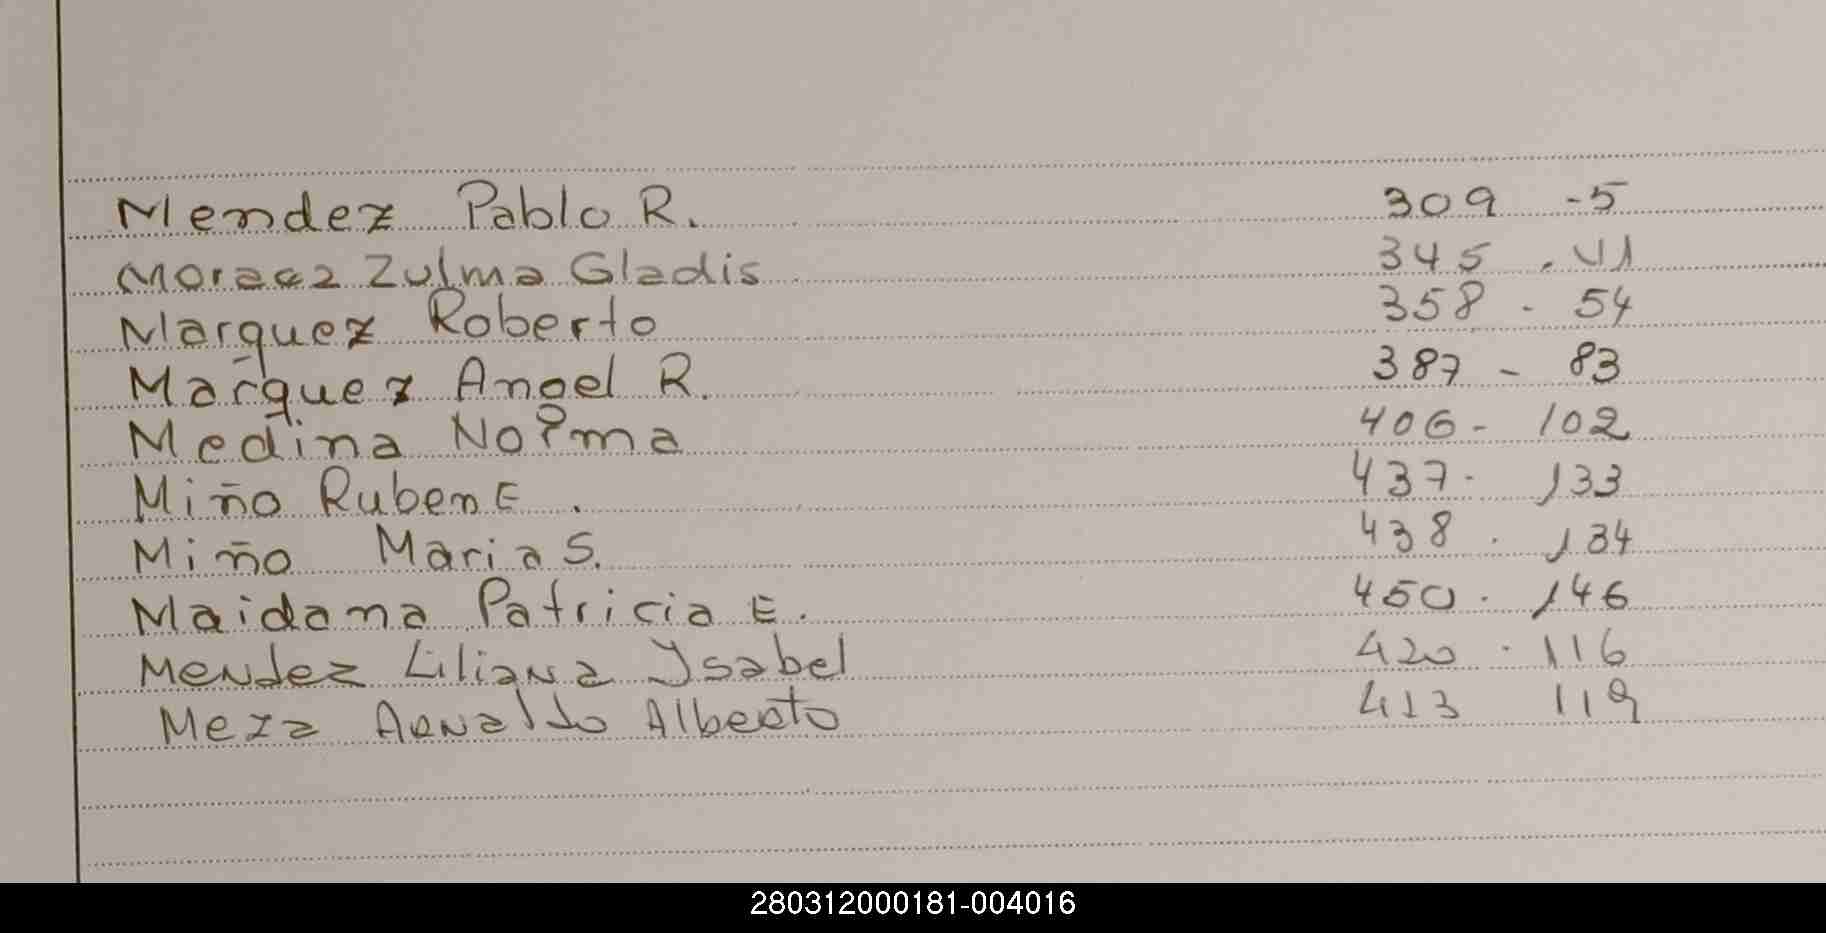 Mendez Pablo R. 309 - 5
Zulma Gladis 345 . 41
Marquez Roberto 358 - 54
Marquez Angel R. 387 - 83
Medina Norma 406 - 102
Miño Ruben E. 437 - 133
Miño Maria S. 438 . 134
Maidana Patricia E. 450 . 146
Mendez Liliana Ysabel 420 . 116
Meza Arnaldo Alberto 413 119
280312000181-004016